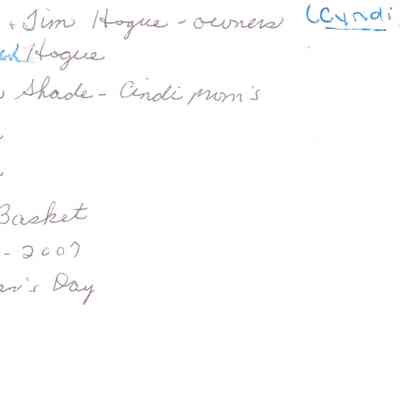 + Jim Hogue - owners (Cyndi
Hogue
Shade - Cindi mom's
Basket
- 2007
Day